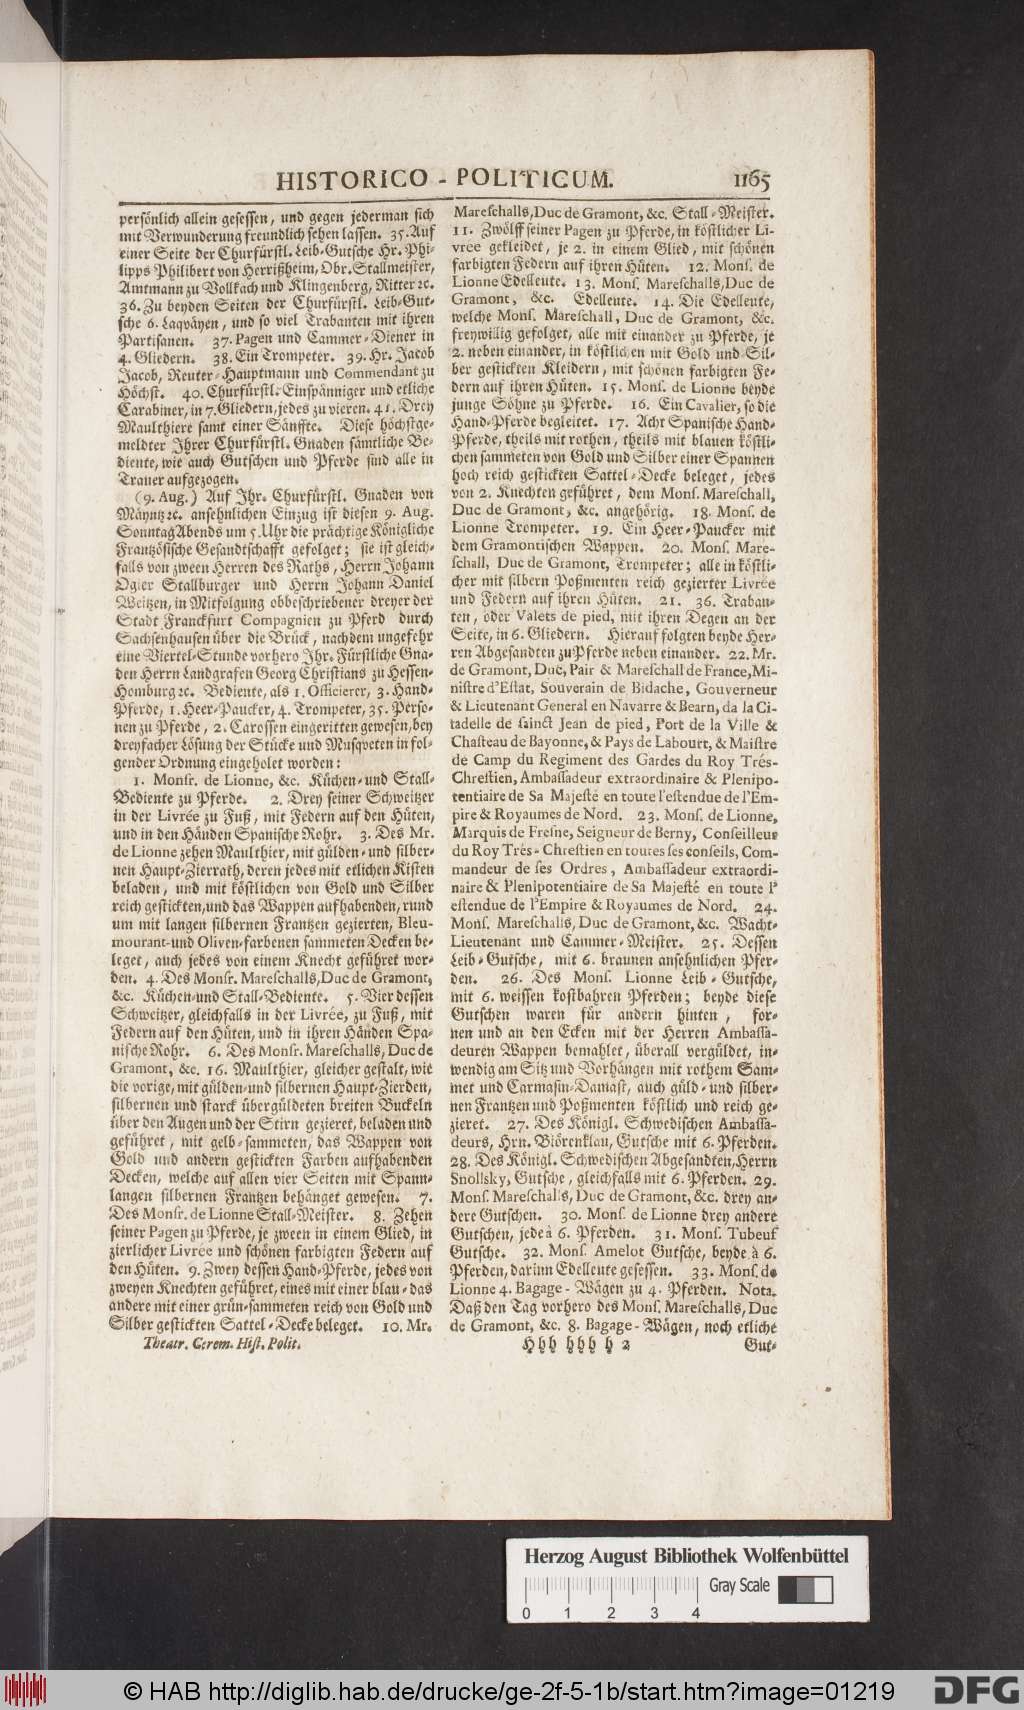 HISTORICO - POLITICUM. 1165
persönlich allein gesessen, und gegen jederman sich
mit Verwunderung freundlich sehen lassen. 35. Auf
einer Seite der Churfürstl. Leib-Gutsche Hr. Phi-
lipps Philibert von Herrißheim, Obr. Stallmeister,
Amtmann zu Volkach und Klingenberg, Ritter ꝛc.
36. Zu beyden Seiten der Churfürstl. Leib-Gut-
sche 6. Laqväyen, und so viel Trabanten mit ihren
Partisanen. 37. Pagen und Cammer-Diener in
4. Gliedern. 38. Ein Trompeter. 39. Hr. Jacob
Jacob, Reuter-Hauptmann und Commendant zu
Höchst. 40. Churfürstl. Einspänniger und etliche
Carabiner, in 7. Gliedern, jedes zu vieren. 41. Drey
Maulthiere samt einer Sänffte. Diese höchstge-
meldter Ihrer Churfürstl. Gnaden sämtliche Be-
diente, wie auch Gutschen und Pferde sind alle in
Trauer aufgezogen.
(9. Aug.) Auf Ihr. Churfürstl. Gnaden von
Mäyntz ꝛc. ansehnlichen Einzug ist diesen 9. Aug.
Sonntag Abends um 5. Uhr die prächtige Königliche
Frantzösische Gesandtschafft gefolget; sie ist gleich-
falls von zween Herren des Raths, Herrn Johann
Ogier Stallburger und Herrn Johann Daniel
Weitzen, in Mitfolgung obbeschriebener dreyer der
Stadt Franckfurt Compagnien zu Pferd durch
Sachsenhausen über die Brück, nachdem ungefehr
eine Viertel-Stunde vorhero Ihr. Fürstliche Gna-
den Herrn Landgrafen Georg Christians zu Hessen-
Homburg ꝛc. Bediente, als 1. Officierer, 3. Hand-
Pferde, 1. Heer-Paucker, 4. Trompeter, 35. Perso-
nen zu Pferde, 2. Carossen eingeritten gewesen, bey
dreyfacher Lösung der Stücke und Musqveten in fol-
gender Ordnung eingeholet worden:
1. Monsr. de Lionne, &c. Küchen- und Stall-
Bediente zu Pferde. 2. Drey seiner Schweitzer
in der Livrée zu Fuß, mit Federn auf den Hüten,
und in den Händen Spanische Rohr. 3. Des Mr.
de Lionne zehen Maulthier, mit gülden- und silber-
nen Haupt-Zierrath, deren jedes mit etlichen Kisten
beladen, und mit köstlichen von Gold und Silber
reich gestickten, und das Wappen aufhabenden, rund
um mit langen silbernen Frantzen gezierten, Bleu-
mourant- und Oliven-farbenen sammeten Decken be-
leget, auch jedes von einem Knecht geführet wor-
den. 4. Des Monsr. Mareschalls, Duc de Gramont,
&c. Küchen- und Stall-Bediente. 5. Vier dessen
Schweitzer, gleichfalls in der Livrée, zu Fuß, mit
Federn auf den Hüten, und in ihren Händen Spa-
nische Rohr. 6. Des Monsr. Mareschalls, Duc de
Gramont, &c. 16. Maulthier, gleicher gestalt, wie
die vorige, mit gülden- und silbernen Haupt-Zierden,
silbernen und starck übergüldeten breiten Buckeln
über den Augen und der Stirn gezieret, beladen und
geführet, mit gelb-sammeten, das Wappen von
Gold und andern gestickten Farben aufhabenden
Decken, welche auf allen vier Seiten mit Spann-
langen silbernen Frantzen behänget gewesen. 7.
Des Monsr. de Lionne Stall-Meister. 8. Zehen
seiner Pagen zu Pferde, je zween in einem Glied, in
zierlicher Livrée und schönen farbigten Federn auf
den Hüten. 9. Zwey dessen Hand-Pferde, jedes von
zweyen Knechten geführet, eines mit einer blau- das
andere mit einer grün-sammeten reich von Gold und
Silber gestickten Sattel-Decke beleget. 10. Mr.
Theatr. Cerem. Hist. Polit.
Mareschalls, Duc de Gramont, &c. Stall-Meister.
11. Zwölff seiner Pagen zu Pferde, in köstlicher Li-
vrée gekleidet, je 2. in einem Glied, mit schönen
farbigten Federn auf ihren Hüten. 12. Mons. de
Lionne Edelleute. 13. Mons. Mareschalls, Duc de
Gramont, &c. Edelleute. 14. Die Edelleute,
welche Mons. Mareschall, Duc de Gramont, &c.
freywillig gefolget, alle mit einander zu Pferde, je
2. neben einander, in köstlichen mit Gold und Sil-
ber gestickten Kleidern, mit schönen farbigten Fe-
dern auf ihren Hüten. 15. Mons. de Lionne beyde
junge Söhne zu Pferde. 16. Ein Cavalier, so die
Hand-Pferde begleitet. 17. Acht Spanische Hand-
Pferde, theils mit rothen, theils mit blauen köstli-
chen sammeten von Gold und Silber einer Spannen
hoch reich gestickten Sattel-Decke beleget, jedes
von 2. Knechten geführet, dem Mons. Mareschall,
Duc de Gramont, &c. angehörig. 18. Mons. de
Lionne Trompeter. 19. Ein Heer-Paucker mit
dem Gramontischen Wappen. 20. Mons. Mare-
schall, Duc de Gramont, Trompeter; alle in köstli-
cher mit silbern Poßmenten reich gezierter Livrée
und Federn auf ihren Hüten. 21. 36. Traban-
ten, oder Valets de pied, mit ihren Degen an der
Seite, in 6. Gliedern. Hierauf folgten beyde Her-
ren Abgesandten zu Pferde neben einander. 22. Mr.
de Gramont, Duc, Pair & Mareschall de France, Mi-
nistre d'Estat, Souverain de Bidache, Gouverneur
& Lieutenant General en Navarre & Bearn, da la Ci-
tadelle de sainct Jean de pied, Port de la Ville &
Chasteau de Bayonne, & Pays de Labourt, & Maistre
de Camp du Regiment des Gardes du Roy Trés-
Chrestien, Ambassadeur extraordinaire & Plenipo-
tentiaire de Sa Majesté en toute l'estendue de l'Em-
pire & Royaumes de Nord. 23. Mons. de Lionne,
Marquis de Fresne, Seigneur de Berny, Conseilleur
du Roy Trés-Chrestien en toutes ses conseils, Com-
mandeur de ses Ordres, Ambassadeur extraordi-
naire & Plenipotentiaire de Sa Majesté en toute l'
estendue de l'Empire & Royaumes de Nord. 24.
Mons. Mareschalls, Duc de Gramont, &c. Wacht-
Lieutenant und Cammer-Meister. 25. Dessen
Leib-Gutsche, mit 6. braunen ansehnlichen Pfer-
den. 26. Des Mons. Lionne Leib-Gutsche,
mit 6. weissen kostbahren Pferden; beyde diese
Gutschen waren für andern hinten, for-
nen und an den Ecken mit der Herren Ambassa-
deuren Wappen bemahlet, überall vergüldet, in-
wendig am Sitz und Vorhängen mit rothem Sam-
met und Carmasin-Damast, auch güld- und silber-
nen Frantzen und Poßmenten köstlich und reich ge-
zieret. 27. Des Königl. Schwedischen Ambassa-
deurs, Hrn. Biörenklau, Gutsche mit 6. Pferden.
28. Des Königl. Schwedischen Abgesandten, Herrn
Snollsky, Gutsche, gleichfalls mit 6. Pferden. 29.
Mons. Mareschalls, Duc de Gramont, &c. drey an-
dere Gutschen. 30. Mons. de Lionne drey andere
Gutschen, jede à 6. Pferden. 31. Mons. Tubeuf
Gutsche. 32. Mons. Amelot Gutsche, beyde à 6.
Pferden, darinn Edelleute gesessen. 33. Mons. de
Lionne 4. Bagage-Wägen zu 4. Pferden. Nota.
Daß den Tag vorhero des Mons. Mareschalls, Duc
de Gramont, &c. 8. Bagage-Wägen, noch etliche
Hhh hhh h 2 Gut-
Herzog August Bibliothek Wolfenbüttel
Gray Scale
0 1 2 3 4
© HAB http://diglib.hab.de/drucke/ge-2f-5-1b/start.htm?image=01219
DFG